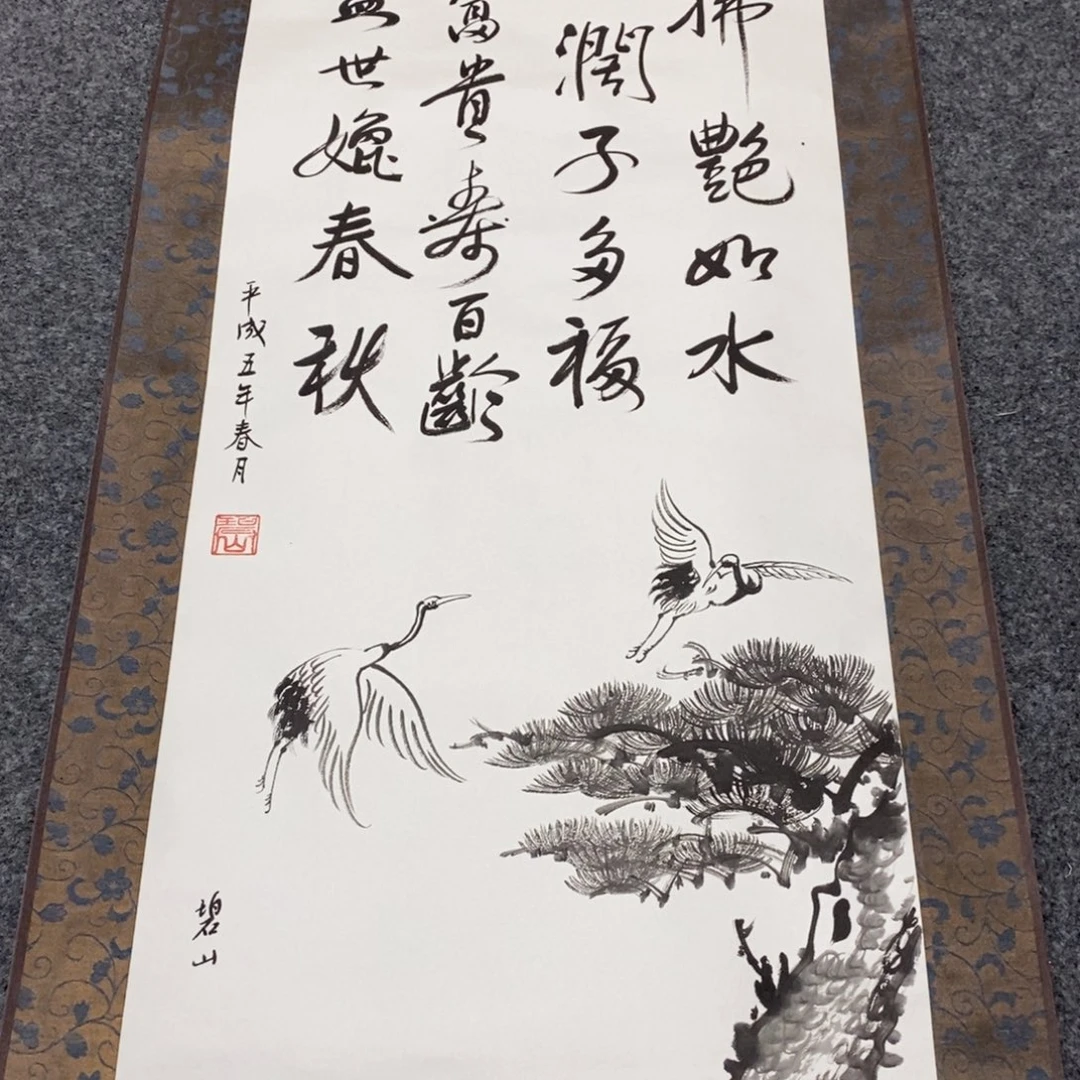 艶如水
潤子多福
富貴寿百齢
世春秋
平成五年春月
碧山
碧山